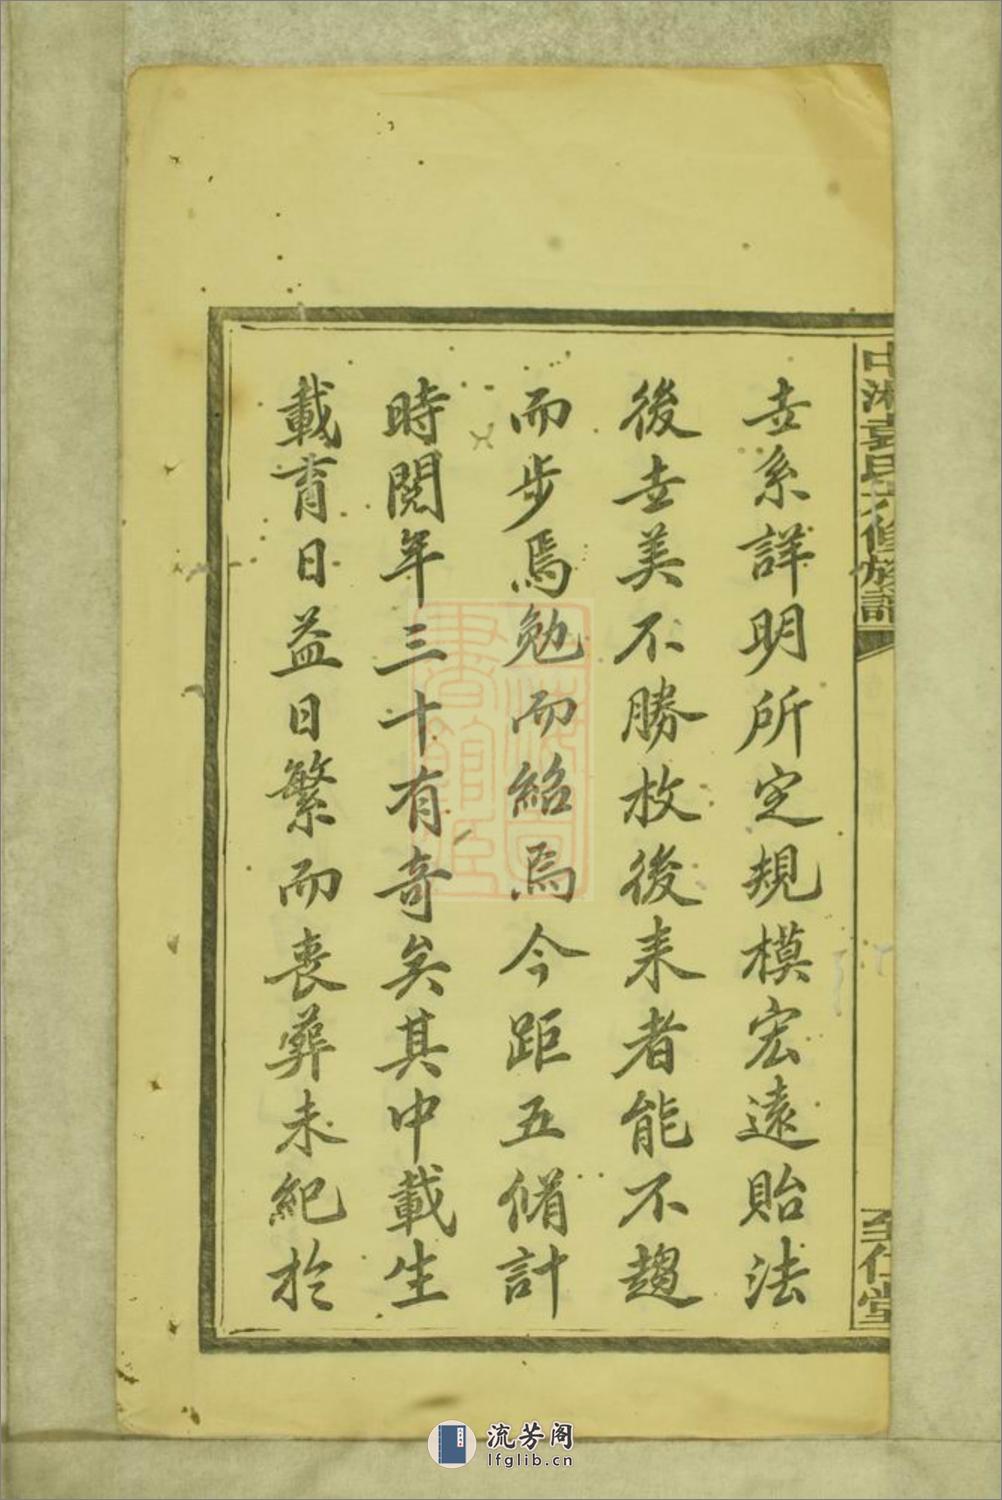 中湘袁氏六修族譜
至仁堂
世系詳明所定規模宏遠貽法
後世美不勝枚後来者能不趨
而步焉勉而紹焉今距五脩計
時閱年三十有奇矣其中載生
載育日益日繁而喪葬未紀於
流芳阁
lfglib.cn